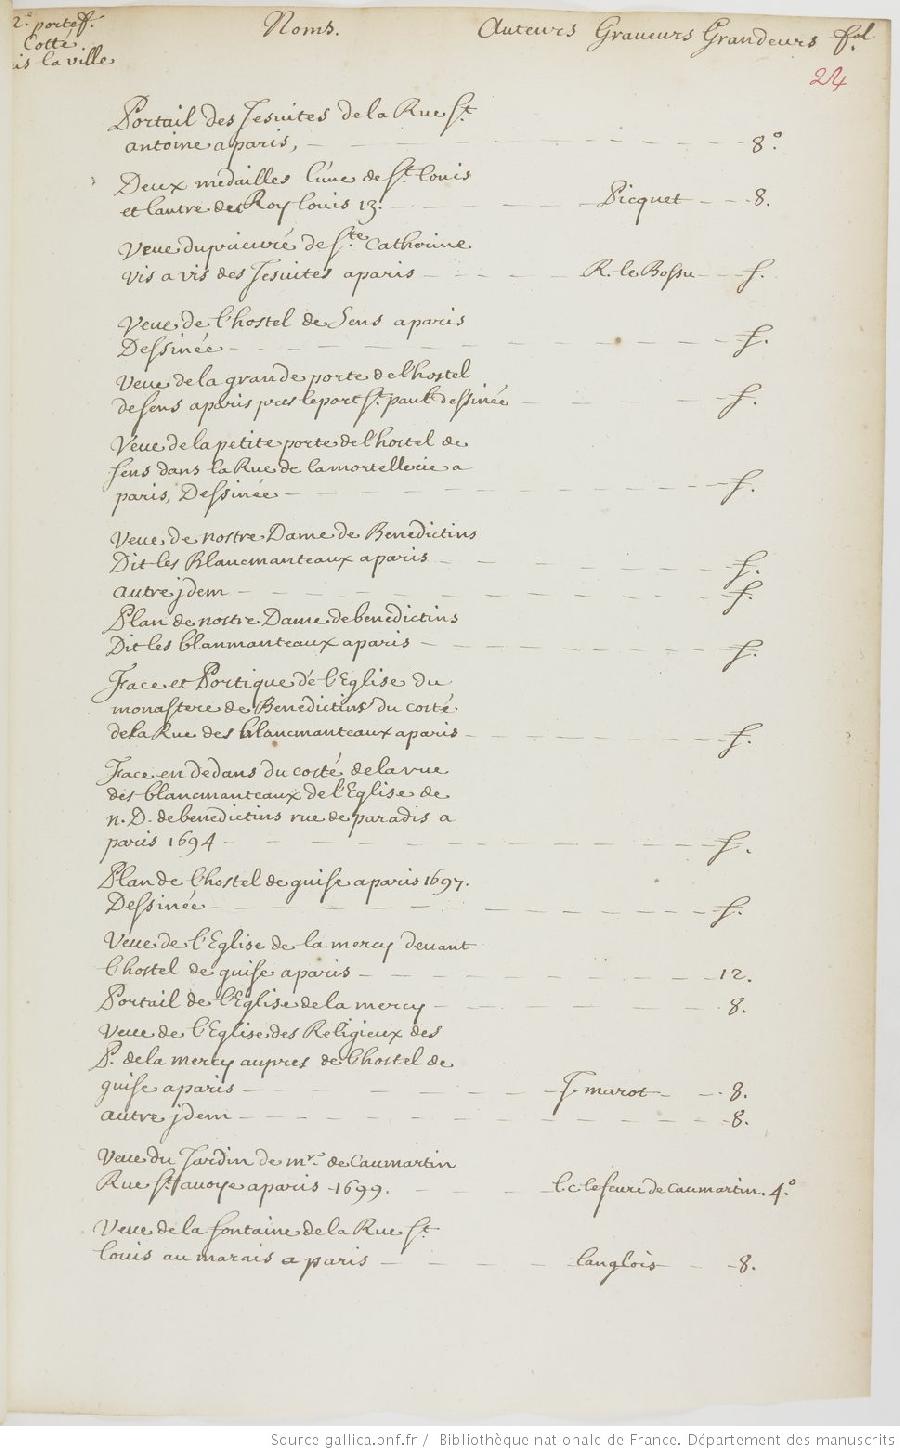 2e porteff. Noms. Auteurs Graueurs Grandeurs fol
Cotté
la ville
24
Portail des Jesuites de la Rue St
antoine a paris, 8°.
Deux medailles l'une de St Louis
et lautre der Roy louis 13. Picquet 8.
Veue du prieuré de Ste Catherine
vis a vis des Jesuites a paris R. le Bossu f.
Veue de l'hostel de Sens a paris
Dessinée f.
Veue de la grande porte de l'hostel
de sens a paris pres le port St paul dessinée f.
Veue de la petite porte de l'hostel de
sens dans la Rue de la mortellerie a
paris, Dessinée f.
Veue de nostre Dame de Benedictins
Dit les Blancmanteaux a paris f.
autre jdem f.
Plan de nostre Dame de benedictins
Dit les blanmanteaux a paris f.
Face et Portique de l'Eglise du
monastere de Benedictins du costé
de la Rue des blancmanteaux a paris f.
Face en dedans du costé de la rue
des blancmanteaux de l'Eglise de
n. D. de benedictins rue de paradis a
paris 1694 f.
Plan de l'hostel de guise a paris 1697.
Dessinée f.
Veue de l'Eglise de la mercy deuant
l'hostel de guise a paris 12.
Portail de l'Eglise de la mercy 8.
Veue de l'Eglise des Religieux des
P. de la mercy aupres de l'hostel de
guise a paris J marot 8.
autre jdem 8.
Veue du Jardin de mr. de Caumartin
Rue St auoye a paris 1699. l. c. lefeure de Caumartin. 4°
Veue de la fontaine de la Rue St
louis au marais a paris langlois 8.
Source gallica.bnf.fr / Bibliothèque nationale de France. Département des manuscrits